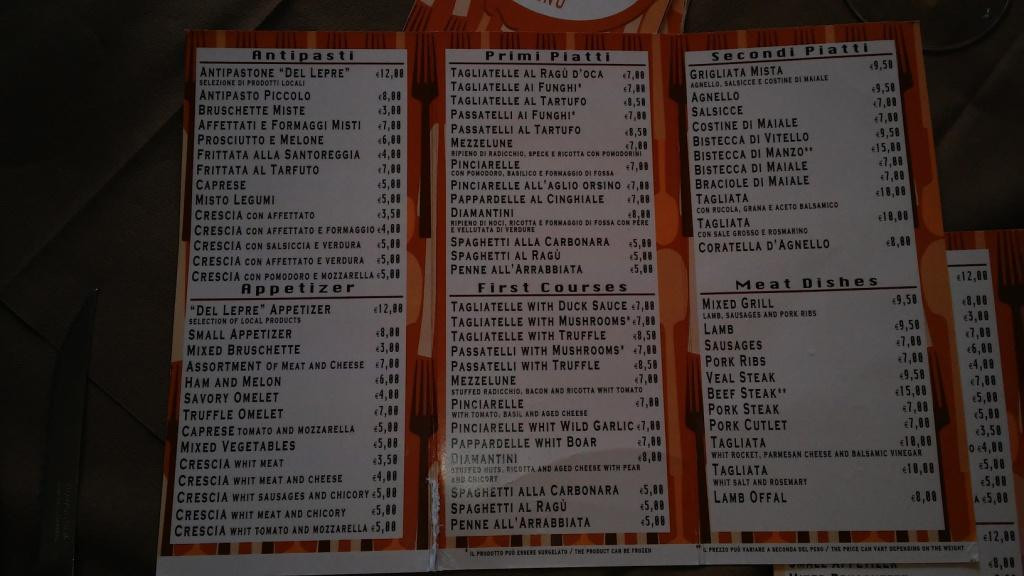 NU
Antipasti
ANTIPASTONE "DEL LEPRE" €12,00
SELEZIONE DI PRODOTTI LOCALI
ANTIPASTO PICCOLO €8,00
BRUSCHETTE MISTE €3,00
AFFETTATI E FORMAGGI MISTI €7,00
PROSCIUTTO E MELONE €6,00
FRITTATA ALLA SANTOREGGIA €4,00
FRITTATA AL TARFUTO €7,00
CAPRESE €5,00
MISTO LEGUMI €5,00
CRESCIA CON AFFETTATO €3,50
CRESCIA CON AFFETTATO E FORMAGGIO €4,00
CRESCIA CON SALSICCIA E VERDURA €5,00
CRESCIA CON AFFETTATO E VERDURA €5,00
CRESCIA CON POMODORO E MOZZARELLA €5,00
Appetizer
"DEL LEPRE" APPETIZER €12,00
SELECTION OF LOCAL PRODUCTS
SMALL APPETIZER €8,00
MIXED BRUSCHETTE €3,00
ASSORTMENT OF MEAT AND CHEESE €7,00
HAM AND MELON €6,00
SAVORY OMELET €4,00
TRUFFLE OMELET €7,00
CAPRESE TOMATO AND MOZZARELLA €5,00
MIXED VEGETABLES €5,00
CRESCIA WHIT MEAT €3,50
CRESCIA WHIT MEAT AND CHEESE €4,00
CRESCIA WHIT SAUSAGES AND CHICORY €5,00
CRESCIA WHIT MEAT AND CHICORY €5,00
CRESCIA WHIT TOMATO AND MOZZARELLA €5,00
Primi Piatti
TAGLIATELLE AL RAGÙ D'OCA €7,00
TAGLIATELLE AI FUNGHI* €7,00
TAGLIATELLE AL TARTUFO €8,50
PASSATELLI AI FUNGHI* €7,00
PASSATELLI AL TARTUFO €8,50
MEZZELUNE €7,00
RIPIENO DI RADICCHIO, SPECK E RICOTTA CON POMODORINI
PINCIARELLE €7,00
CON POMODORO, BASILICO E FORMAGGIO DI FOSSA
PINCIARELLE ALL'AGLIO ORSINO €7,00
PAPPARDELLE AL CINGHIALE €7,00
DIAMANTINI €8,00
RIPIENO DI NOCI, RICOTTA E FORMAGGIO DI FOSSA CON PERE
E VELLUTATA DI VERDURE
SPAGHETTI ALLA CARBONARA €5,00
SPAGHETTI AL RAGÙ €5,00
PENNE ALL'ARRABBIATA €5,00
First Courses
TAGLIATELLE WITH DUCK SAUCE €7,00
TAGLIATELLE WITH MUSHROOMS* €7,00
TAGLIATELLE WITH TRUFFLE €8,50
PASSATELLI WITH MUSHROOMS* €7,00
PASSATELLI WITH TRUFFLE €8,50
MEZZELUNE €7,00
STUFFED RADICCHIO, BACON AND RICOTTA WHIT TOMATO
PINCIARELLE €7,00
WITH TOMATO, BASIL AND AGED CHEESE
PINCIARELLE WHIT WILD GARLIC €7,00
PAPPARDELLE WHIT BOAR €7,00
DIAMANTINI €8,00
STUFFED NUTS, RICOTTA AND AGED CHEESE WITH PEAR
AND CHICORY
SPAGHETTI ALLA CARBONARA €5,00
SPAGHETTI AL RAGÙ €5,00
PENNE ALL'ARRABBIATA €5,00
* IL PRODOTTO PUÒ ESSERE SURGELATO / THE PRODUCT CAN BE FROZEN
Secondi Piatti
GRIGLIATA MISTA €9,50
AGNELLO, SALSICCE E COSTINE DI MAIALE
AGNELLO €9,50
SALSICCE €7,00
COSTINE DI MAIALE €7,00
BISTECCA DI VITELLO €9,50
BISTECCA DI MANZO** €15,00
BISTECCA DI MAIALE €7,00
BRACIOLE DI MAIALE €7,00
TAGLIATA €10,00
CON RUCOLA, GRANA E ACETO BALSAMICO
TAGLIATA €10,00
CON SALE GROSSO E ROSMARINO
CORATELLA D'AGNELLO €8,00
Meat Dishes
MIXED GRILL €9,50
LAMB, SAUSAGES AND PORK RIBS
LAMB €9,50
SAUSAGES €7,00
PORK RIBS €7,00
VEAL STEAK €9,50
BEEF STEAK** €15,00
PORK STEAK €7,00
PORK CUTLET €7,00
TAGLIATA €10,00
WHIT ROCKET, PARMESAN CHEESE AND BALSAMIC VINEGAR
TAGLIATA €10,00
WHIT SALT AND ROSEMARY
LAMB OFFAL €8,00
** IL PREZZO PUÒ VARIARE A SECONDA DEL PESO / THE PRICE CAN VARY DEPENDING ON THE WEIGHT
€12,00
€8,00
€3,00
€7,00
€6,00
€4,00
€7,00
€5,00
€5,00
€3,50
O €4,00
€5,00
€5,00
A €5,00
€12,00
SMALL APPETIZER €8,00